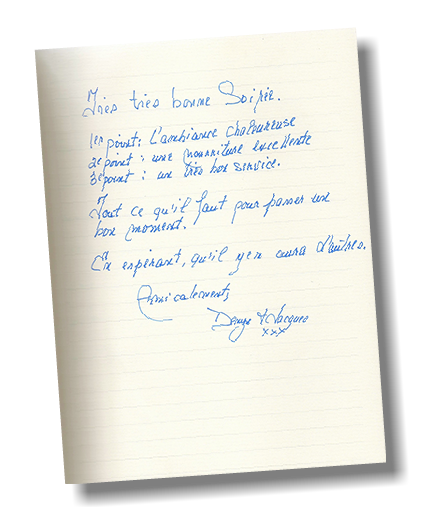 Très très bonne Soirée.
1er point: L'ambiance chaleureuse
2e point: une nourriture excellente
3e point: un très bon service.
Tout ce qu'il faut pour passer un
bon moment.
En espérant, qu'il y en aura d'autres.
Amicalement,
Denyse & Jacques
xxx